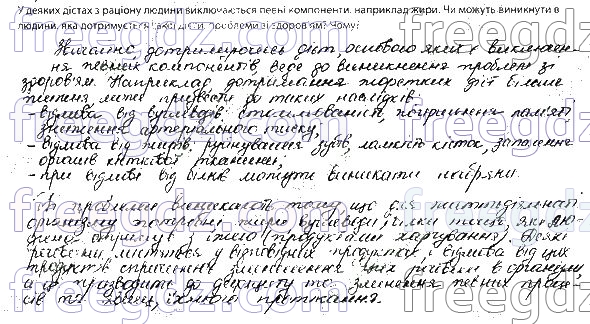 У деяких дієтах з раціону людини виключаються певні компоненти, наприклад жири. Чи можуть виникнути в
людини, яка дотримується такої дієти, проблеми зі здоров'ям? Чому?
дотримуючись дієт, основою яких є виключен-
ня певних компонентів веде до виникнення проблем зі
здоров'ям. Наприклад дотримання жорстких дієт більше
тижня може призвести до таких наслідків:
- відмова від вуглеводів: стомлюваність, погіршення пам'яті
зниження артеріального тиску,
- відмова від жирів: руйнування зубів, ламкість кісток, запалення
органів кісткової тканини,
- при відмові від білків можуть виникати набряки.
Ці проблеми виникають тому, що для життєдіяльності
організму потрібні жири вуглеводи, білки тощо, які лю-
дина отримує з їжею (продуктами харчування). Деякі
речовини містяться у відповідних продуктах і відмова від цих
продуктів спричинює зменшення цих речовин в організмі,
а це призводить до дефіциту та змінення певних проце-
сів та їхнього протікання.
freegdz